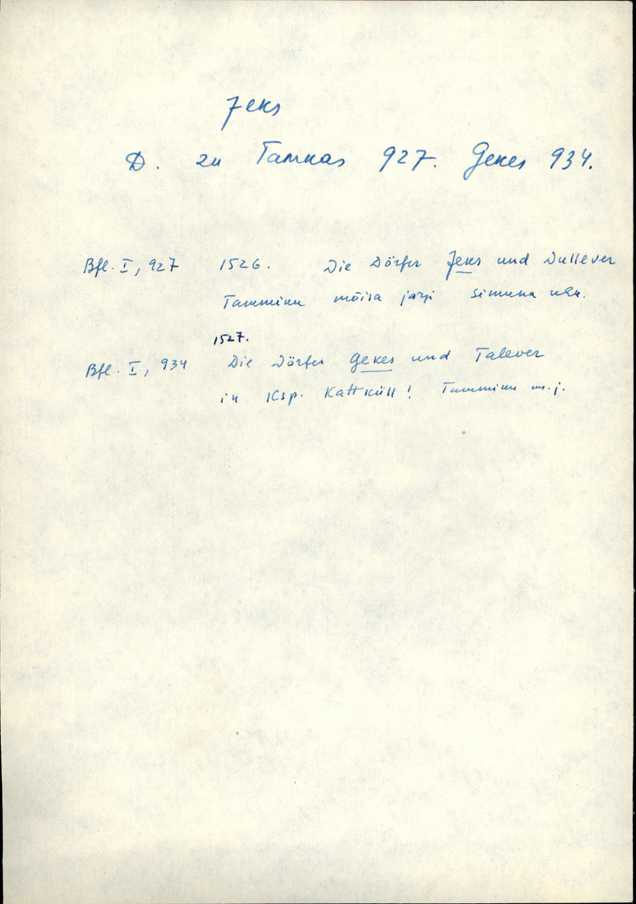 Jeks
D. zu Tamkas 927. Gekes 934.
Bfl. I, 927 1526. Die Dörfer Jeks und Dullever
Tammiku mõisa järgi Simuna khk.
1527.
Bfl. I, 934 Die Dörfer Gekes und Talever
in Ksp. Kattküll! Tammiku m. j.